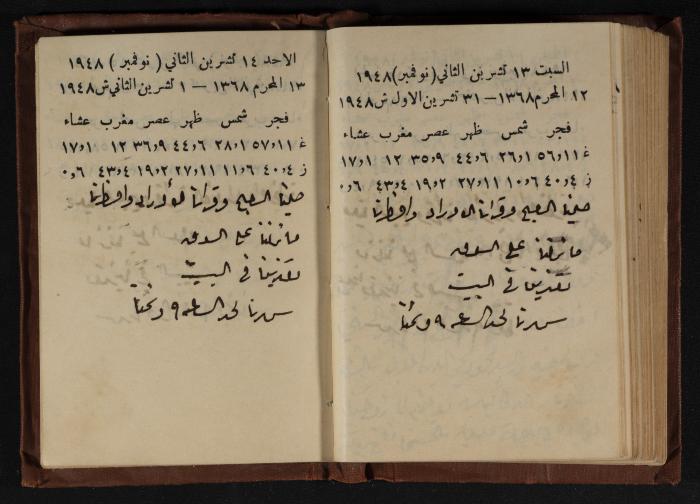 السبت ١٣ تشرين الثاني (نوفمبر) ١٩٤٨
١٢ المحرم ١٣٦٨ — ٣١ تشرين الاول ش ١٩٤٨
فجر شمس ظهر عصر مغرب عشاء
غ ١١و٥٦ ١و٢٦ ٦و٤٤ ٩و٣٥ ١٢ ١و١٧
ز ٤و٤٠ ٦و١٠ ١١و٢٧ ٢و١٩ ٤و٤٣ ٦و٠
صلينا الصبح وقرأنا الاوراد وافطرنا
ما نزلنا على السوق
تغدينا في البيت
سهرنا لحد الساعه ٩ ونمنا
الاحد ١٤ تشرين الثاني (نوفمبر) ١٩٤٨
١٣ المحرم ١٣٦٨ — ١ تشرين الثاني ش ١٩٤٨
فجر شمس ظهر عصر مغرب عشاء
غ ١١و٥٧ ١و٢٨ ٦و٤٤ ٩و٣٦ ١٢ ١و١٧
ز ٤و٤٠ ٦و١١ ١١و٢٧ ٢و١٩ ٤و٤٣ ٦و٠
صلينا الصبح وقرأنا الاوراد وافطرنا
ما نزلنا على السوق
تغدينا في البيت
سهرنا لحد الساعه ٩ ونمنا